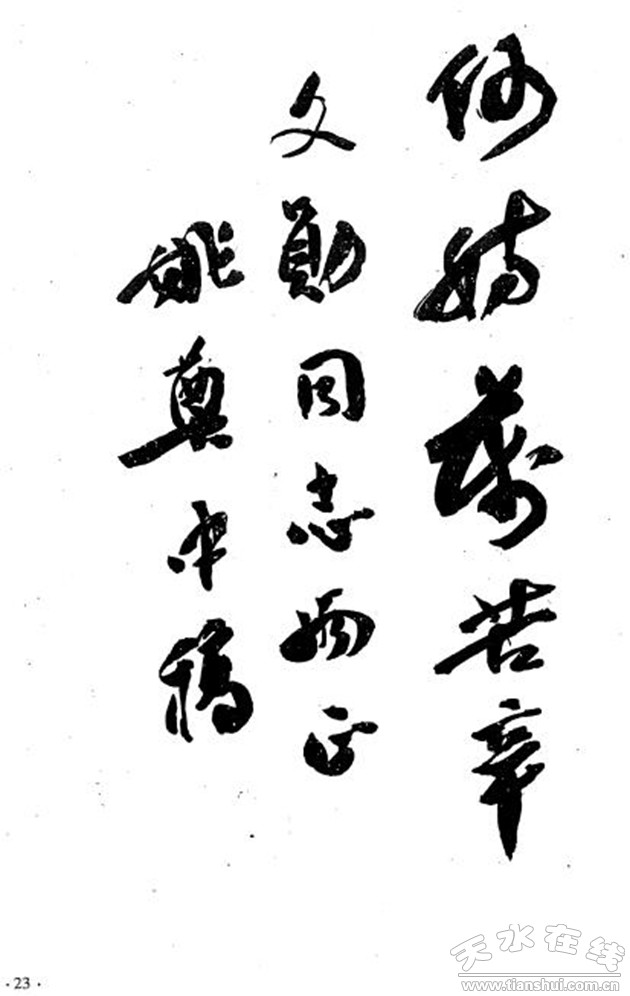 何妨萬苦辛
文勛同志正
姚奠中稿
·23·
天水在线
www.tianshui.com.cn